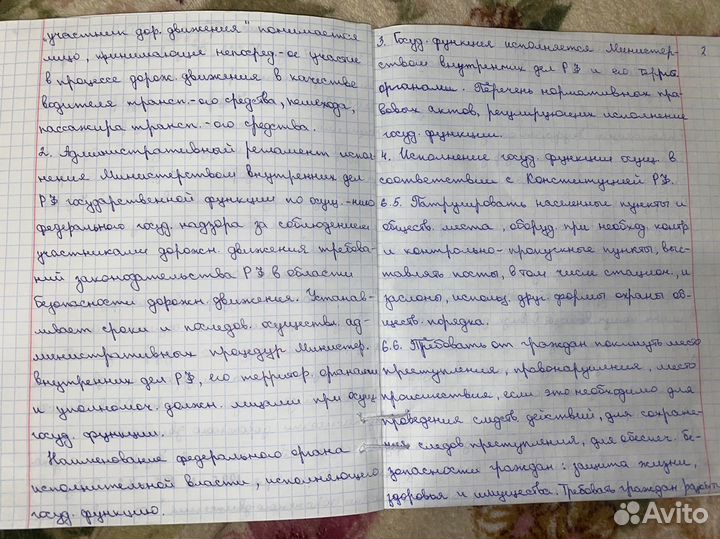 „участник дор. движения" понимается
лицо, принимающее непосред.-ое участие
в процессе дорож. движения в качестве
водителя трансп.-ого средства, пешехода,
пассажира трансп.-ого средства.
2. Административный регламент испол-
нения Министерством внутренних дел
РФ государственной функции по осущ.-нию
федерального госуд. надзора за соблюдением
участниками дорожн. движения требова-
ний законодательства РФ в области
безопасности дорожн. движения. Устанав-
ливает сроки и последов. осуществл. ад-
министративных процедур Министер.
внутренних дел РФ, его территор. органами
и уполномоч. должн. лицами при осущ.
госуд. функции.
Наименование федерального органа
исполнительной власти, исполняющего
госуд. функцию.
2
3. Госуд. функция исполняется Министер-
ством внутренних дел РФ и его террит.
органами. Перечень нормативных пра-
вовых актов, регулирующих исполнение
госуд. функции.
4. Исполнение госуд. функции осущ. в
соответствии с Конституцией РФ.
6.5. Патрулировать населенные пункты и
обществ. места, оборуд. при необход. контр
и контрольно-пропускные пункты, выс-
тавлять посты, в том числе стацион., и
заслоны, использ. друг. формы охраны об-
ществ. порядка.
6.6. Требовать от граждан покинуть место
преступления, правонарушения, место
происшествия, если это необходимо для
проведения следств. действий, для сохране-
ния следов преступления, для обеспеч. бе-
зопасности граждан: защита жизни,
здоровья и имущества. Требовать граждан
Avito